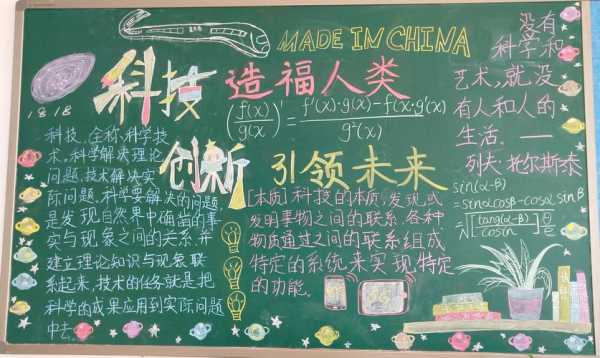 MADE IN CHINA
科技 造福人类
创新 引领未来
1818
(f(x)/g(x))' = f'(x)·g(x)-f(x)·g'(x)/g²(x)
科技，全称科学技
术，科学解决理论
问题，技术解决实
际问题，科学要解决的问题
是发现自然界中确凿的事
实与现象之间的关系，并
建立理论知识与现象联
系起来，技术的任务就是把
科学的成果应用到实际问题
中去。
[本质]科技的本质，发现或
发明事物之间的联系，各种
物质通过之间的联系组成
特定的系统来实现特定
的功能。
没有
科学和
艺术，就没
有人和人的
生活。——
列夫·托尔斯泰
sin(α-β)
=sinαcosβ-cosα sinβ